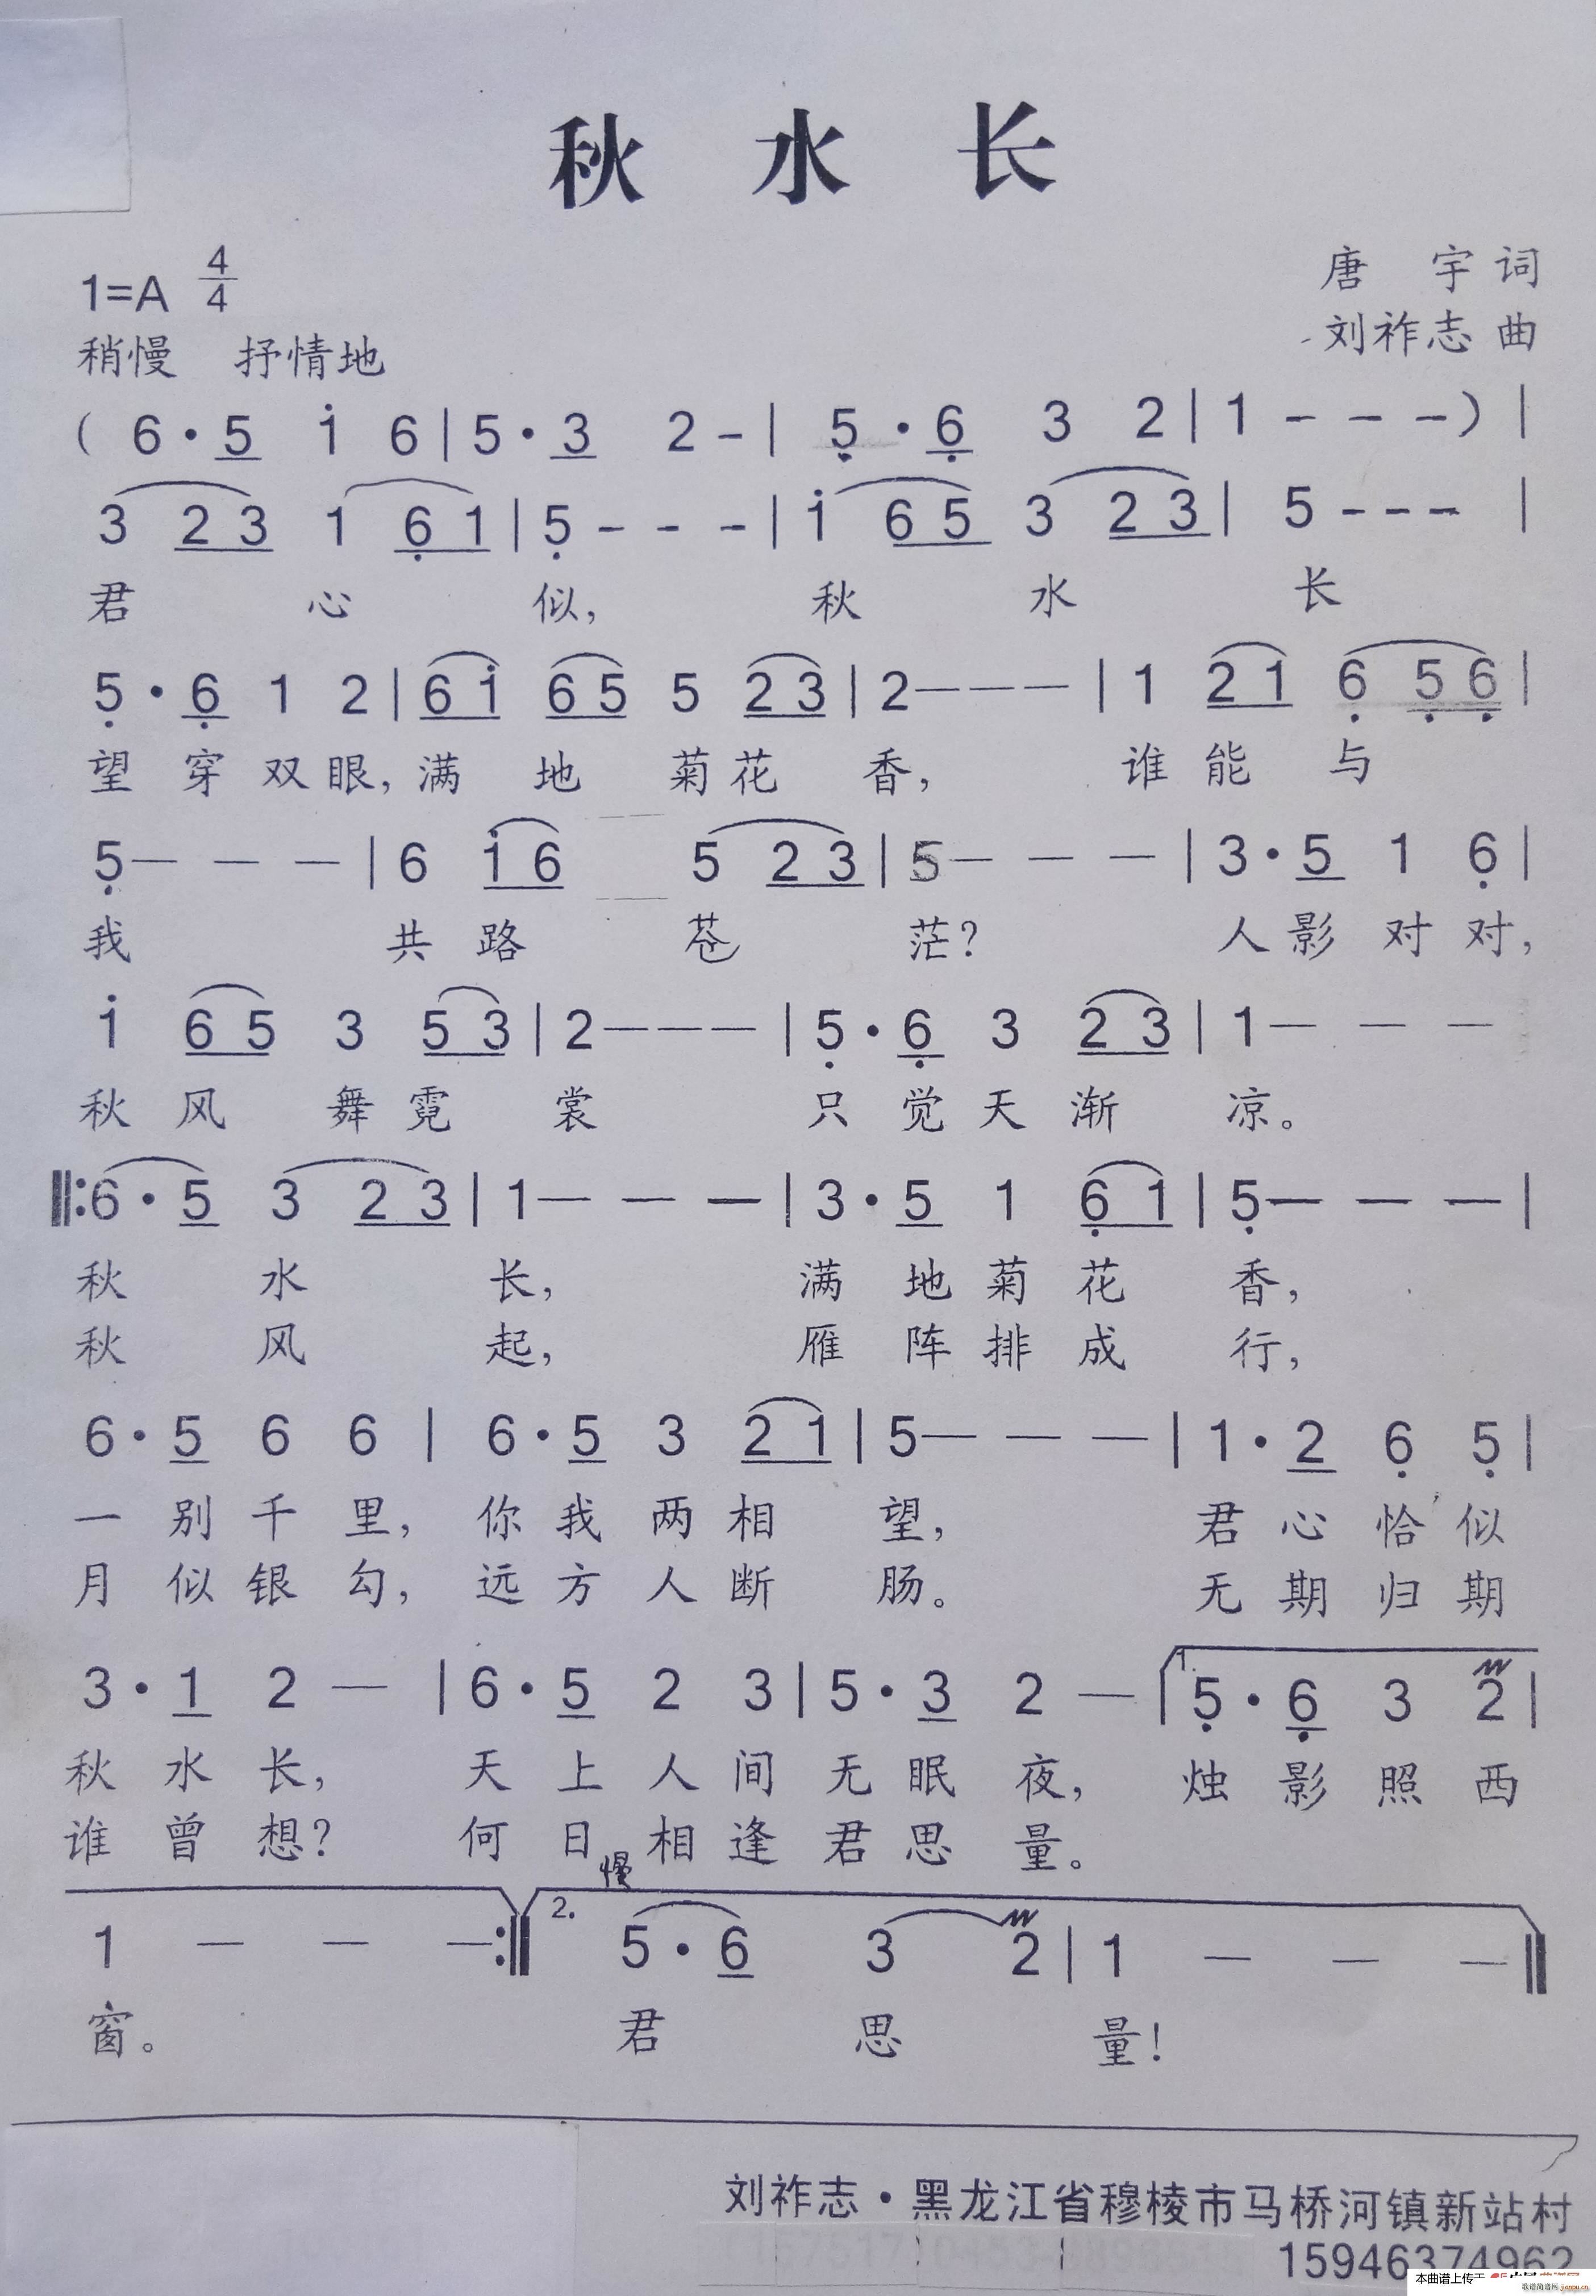 秋 水 长
1=A 4/4
唐 宇 词
刘祚志 曲
稍慢 抒情地
( 6 · 5 i 6 | 5 · 3 2 - | 5 · 6 3 2 | 1 - - - ) |
3 2 3 1 6 1 | 5 - - - | i 6 5 3 2 3 | 5 - - - |
君 心 似, 秋 水 长
5 · 6 1 2 | 6 i 6 5 5 2 3 | 2 — — — | 1 2 1 6 5 6 |
望 穿 双 眼, 满 地 菊 花 香, 谁 能 与
5 — — — | 6 i 6 5 2 3 | 5 — — — | 3 · 5 1 6 |
我 共 路 苍 茫? 人 影 对 对,
i 6 5 3 5 3 | 2 — — — | 5 · 6 3 2 3 | 1 — — —
秋 风 舞 霓 裳 只 觉 天 渐 凉。
‖: 6 · 5 3 2 3 | 1 — — — | 3 · 5 1 6 1 | 5 — — — |
秋 水 长, 满 地 菊 花 香,
秋 风 起, 雁 阵 排 成 行,
6 · 5 6 6 | 6 · 5 3 2 1 | 5 — — — | 1 · 2 6 5 |
一 别 千 里, 你 我 两 相 望, 君 心 恰 似
月 似 银 勾, 远 方 人 断 肠。 无 期 归 期
3 · 1 2 — | 6 · 5 2 3 | 5 · 3 2 — | 1. 5 · 6 3 2 |
秋 水 长, 天 上 人 间 无 眠 夜, 烛 影 照 西
谁 曾 想? 何 日 相 逢 君 思 量。
慢
1 — — — :‖ 2. 5 · 6 3 2 | 1 — — — ‖
窗。 君 思 量!
刘祚志·黑龙江省穆棱市马桥河镇新站村
15946374962
本曲谱上传于
歌谱简谱网 jianpu.cn